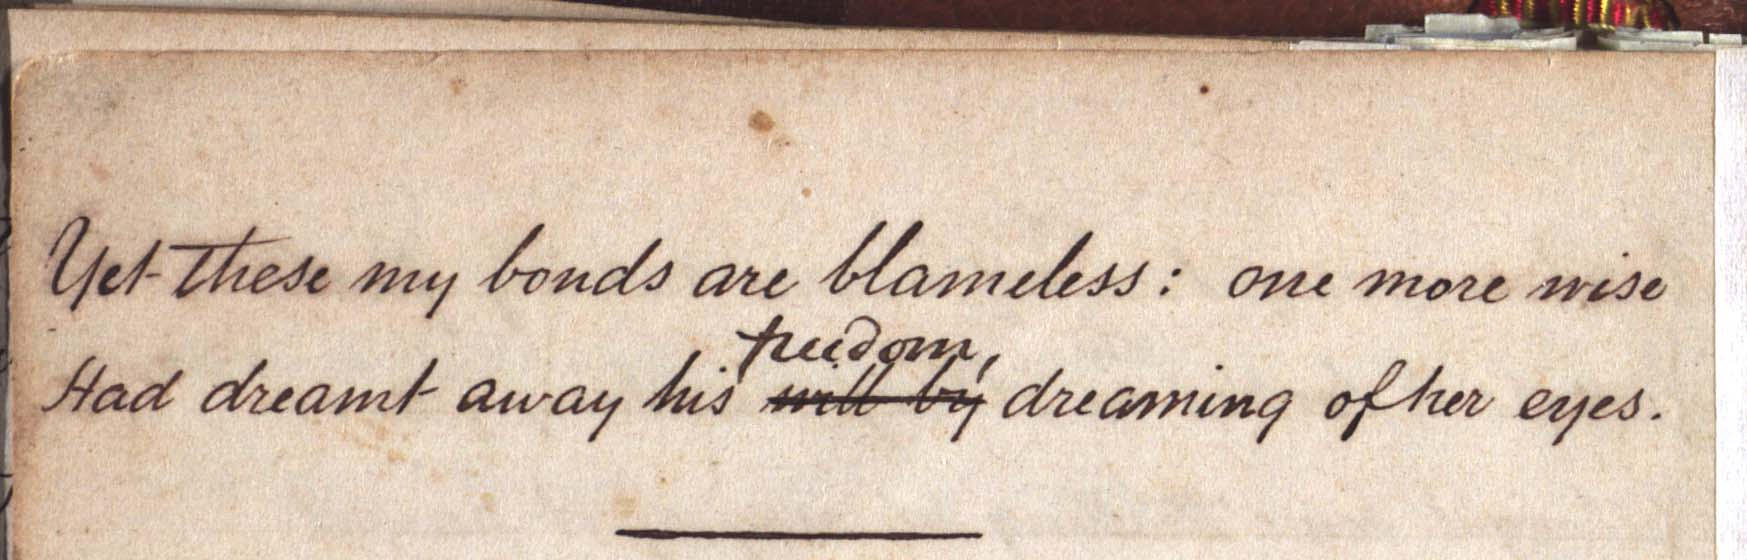 Yet these my bonds are blameless: one more wise
freedom,
Had dreamt away his will by dreaming of her eyes.